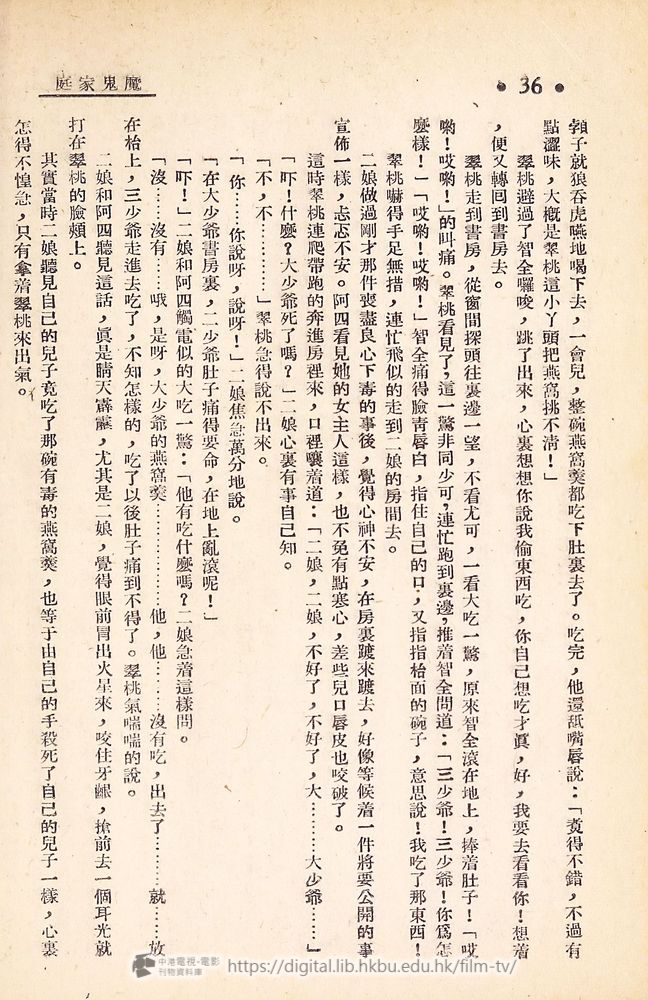 魔鬼家庭
• 36 •
顆子就狼吞虎嚥地喝下去，一會兒，整碗燕窩羹都吃下肚裏去了。吃完，他還舐嘴唇說：「煑得不錯，不過有
點澀味，大槪是翠桃這小丫頭把燕窩挑不淸！」
翠桃避過了智全囉唆，跳了出來，心裏想想你說我偷東西吃，你自己想吃才眞，好，我要去看看你！想着
，便又轉囘到書房去。
翠桃走到書房，從窗間探頭往裏邊一望，不看尤可，一看大吃一驚，原來智全滾在地上，捧着肚子！「哎
喲！哎喲！」的叫痛。翠桃看見了，這一驚非同少可，連忙跑到裏邊，推着智全問道：「三少爺！三少爺！你爲怎
麼樣！」「哎喲！哎喲！」智全痛得臉靑唇白，指住自己的口，又指指枱面的碗子，意思說！我吃了那東西！
翠桃嚇得手足無措，連忙飛似的走到二娘的房間去。
二娘做過剛才那件喪盡良心下毒的事後，覺得心神不安，在房裏踱來踱去，好像等候着一件將要公開的事
宣佈一樣，忐忑不安。阿四看見她的女主人這樣，也不免有點寒心，差些兒口唇皮也咬破了。
這時翠桃連爬帶跑的奔進房裡來，口裡嚷着道：「二娘，二娘，不好了，不好了，大………大少爺……」
「吓！什麼？大少爺死了嗎？」二娘心裏有事自己知。
「不，不…………」翠桃急得說不出來。
「你……你說呀，說呀！」二娘焦急萬分地說。
「在大少爺書房裏，二少爺肚子痛得要命，在地上亂滾呢！」
「吓！」二娘和阿四觸電似的大吃一驚：「他有吃什麼嗎？二娘急着這樣問。
「沒……沒有……哦，是呀，大少爺的燕窩羹………………他，他………沒有吃，出去了………就……放
在枱上，三少爺走進去吃了，不知怎樣的，吃了以後肚子痛到不得了。翠桃氣喘喘的說。
二娘和阿四聽見這話，眞是晴天霹靂，尤其是二娘，覺得眼前冒出火星來，咬住牙齦，搶前去一個耳光就
打在翠桃的臉頰上。
其實當時二娘聽見自己的兒子竟吃了那碗有毒的燕窩羹，也等于由自己的手殺死了自己的兒子一樣，心裏
怎得不惶急，只有拿着翠桃來出氣。
中港電視-電影
刊物資料庫
https://digital.lib.hkbu.edu.hk/film-tv/